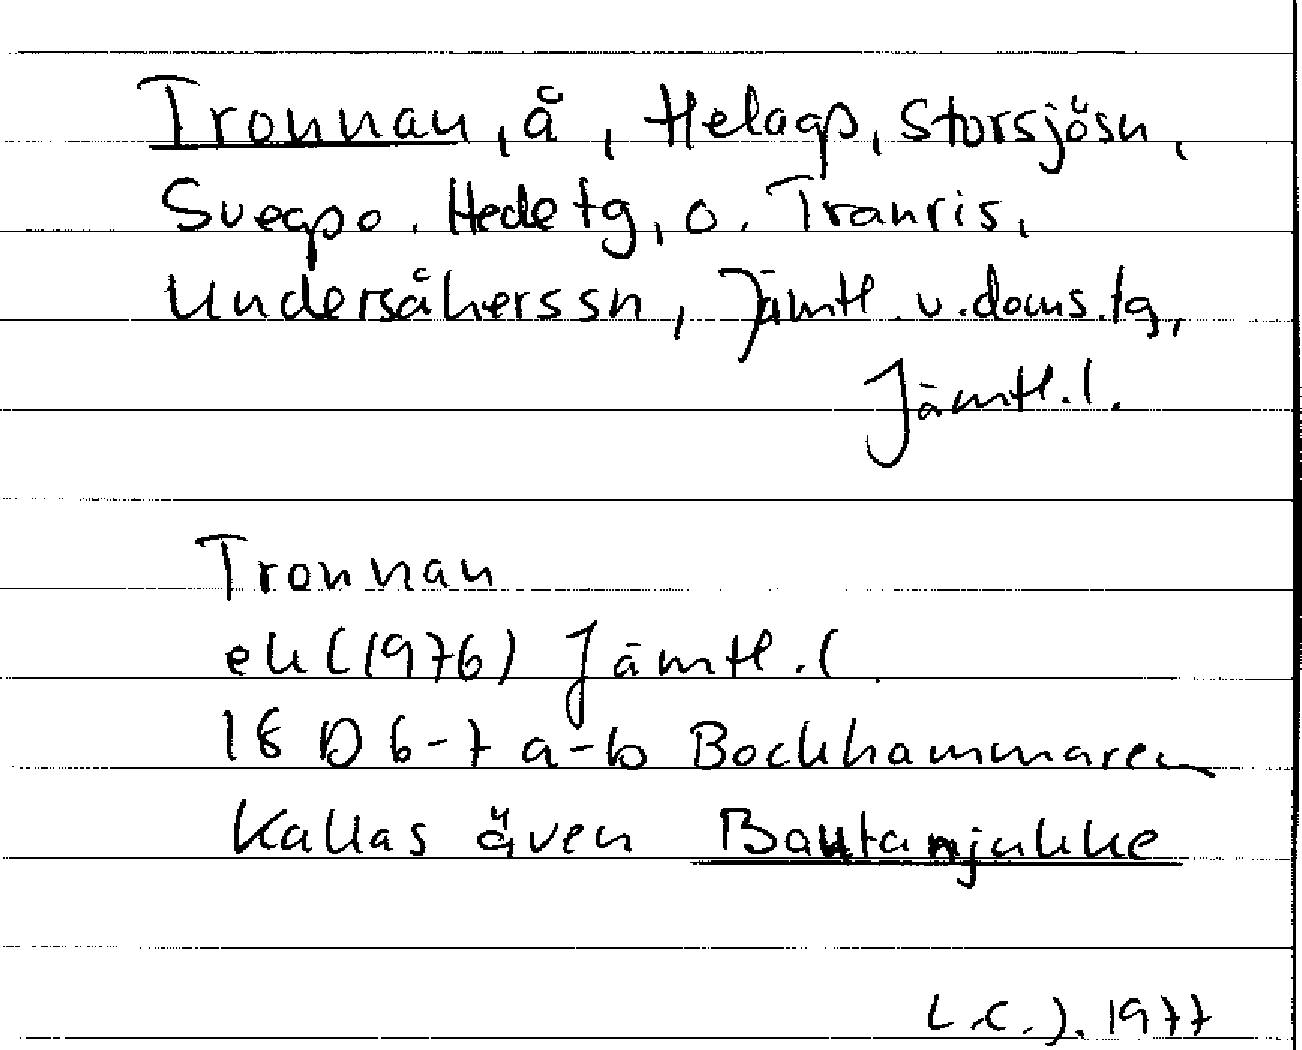 Tronnan, å, Helags, Storsjösn,
Svegs o. Hede tg, o. Tranris,
Undersåkerssn, Jämtl. v. doms. tg,
Jämtl. l.
Tronnan
ek (1976) Jämtl. l
18 D 6-7 a-b Bockhammaren
Kallas även Bautanjukke
L.C.J. 1977